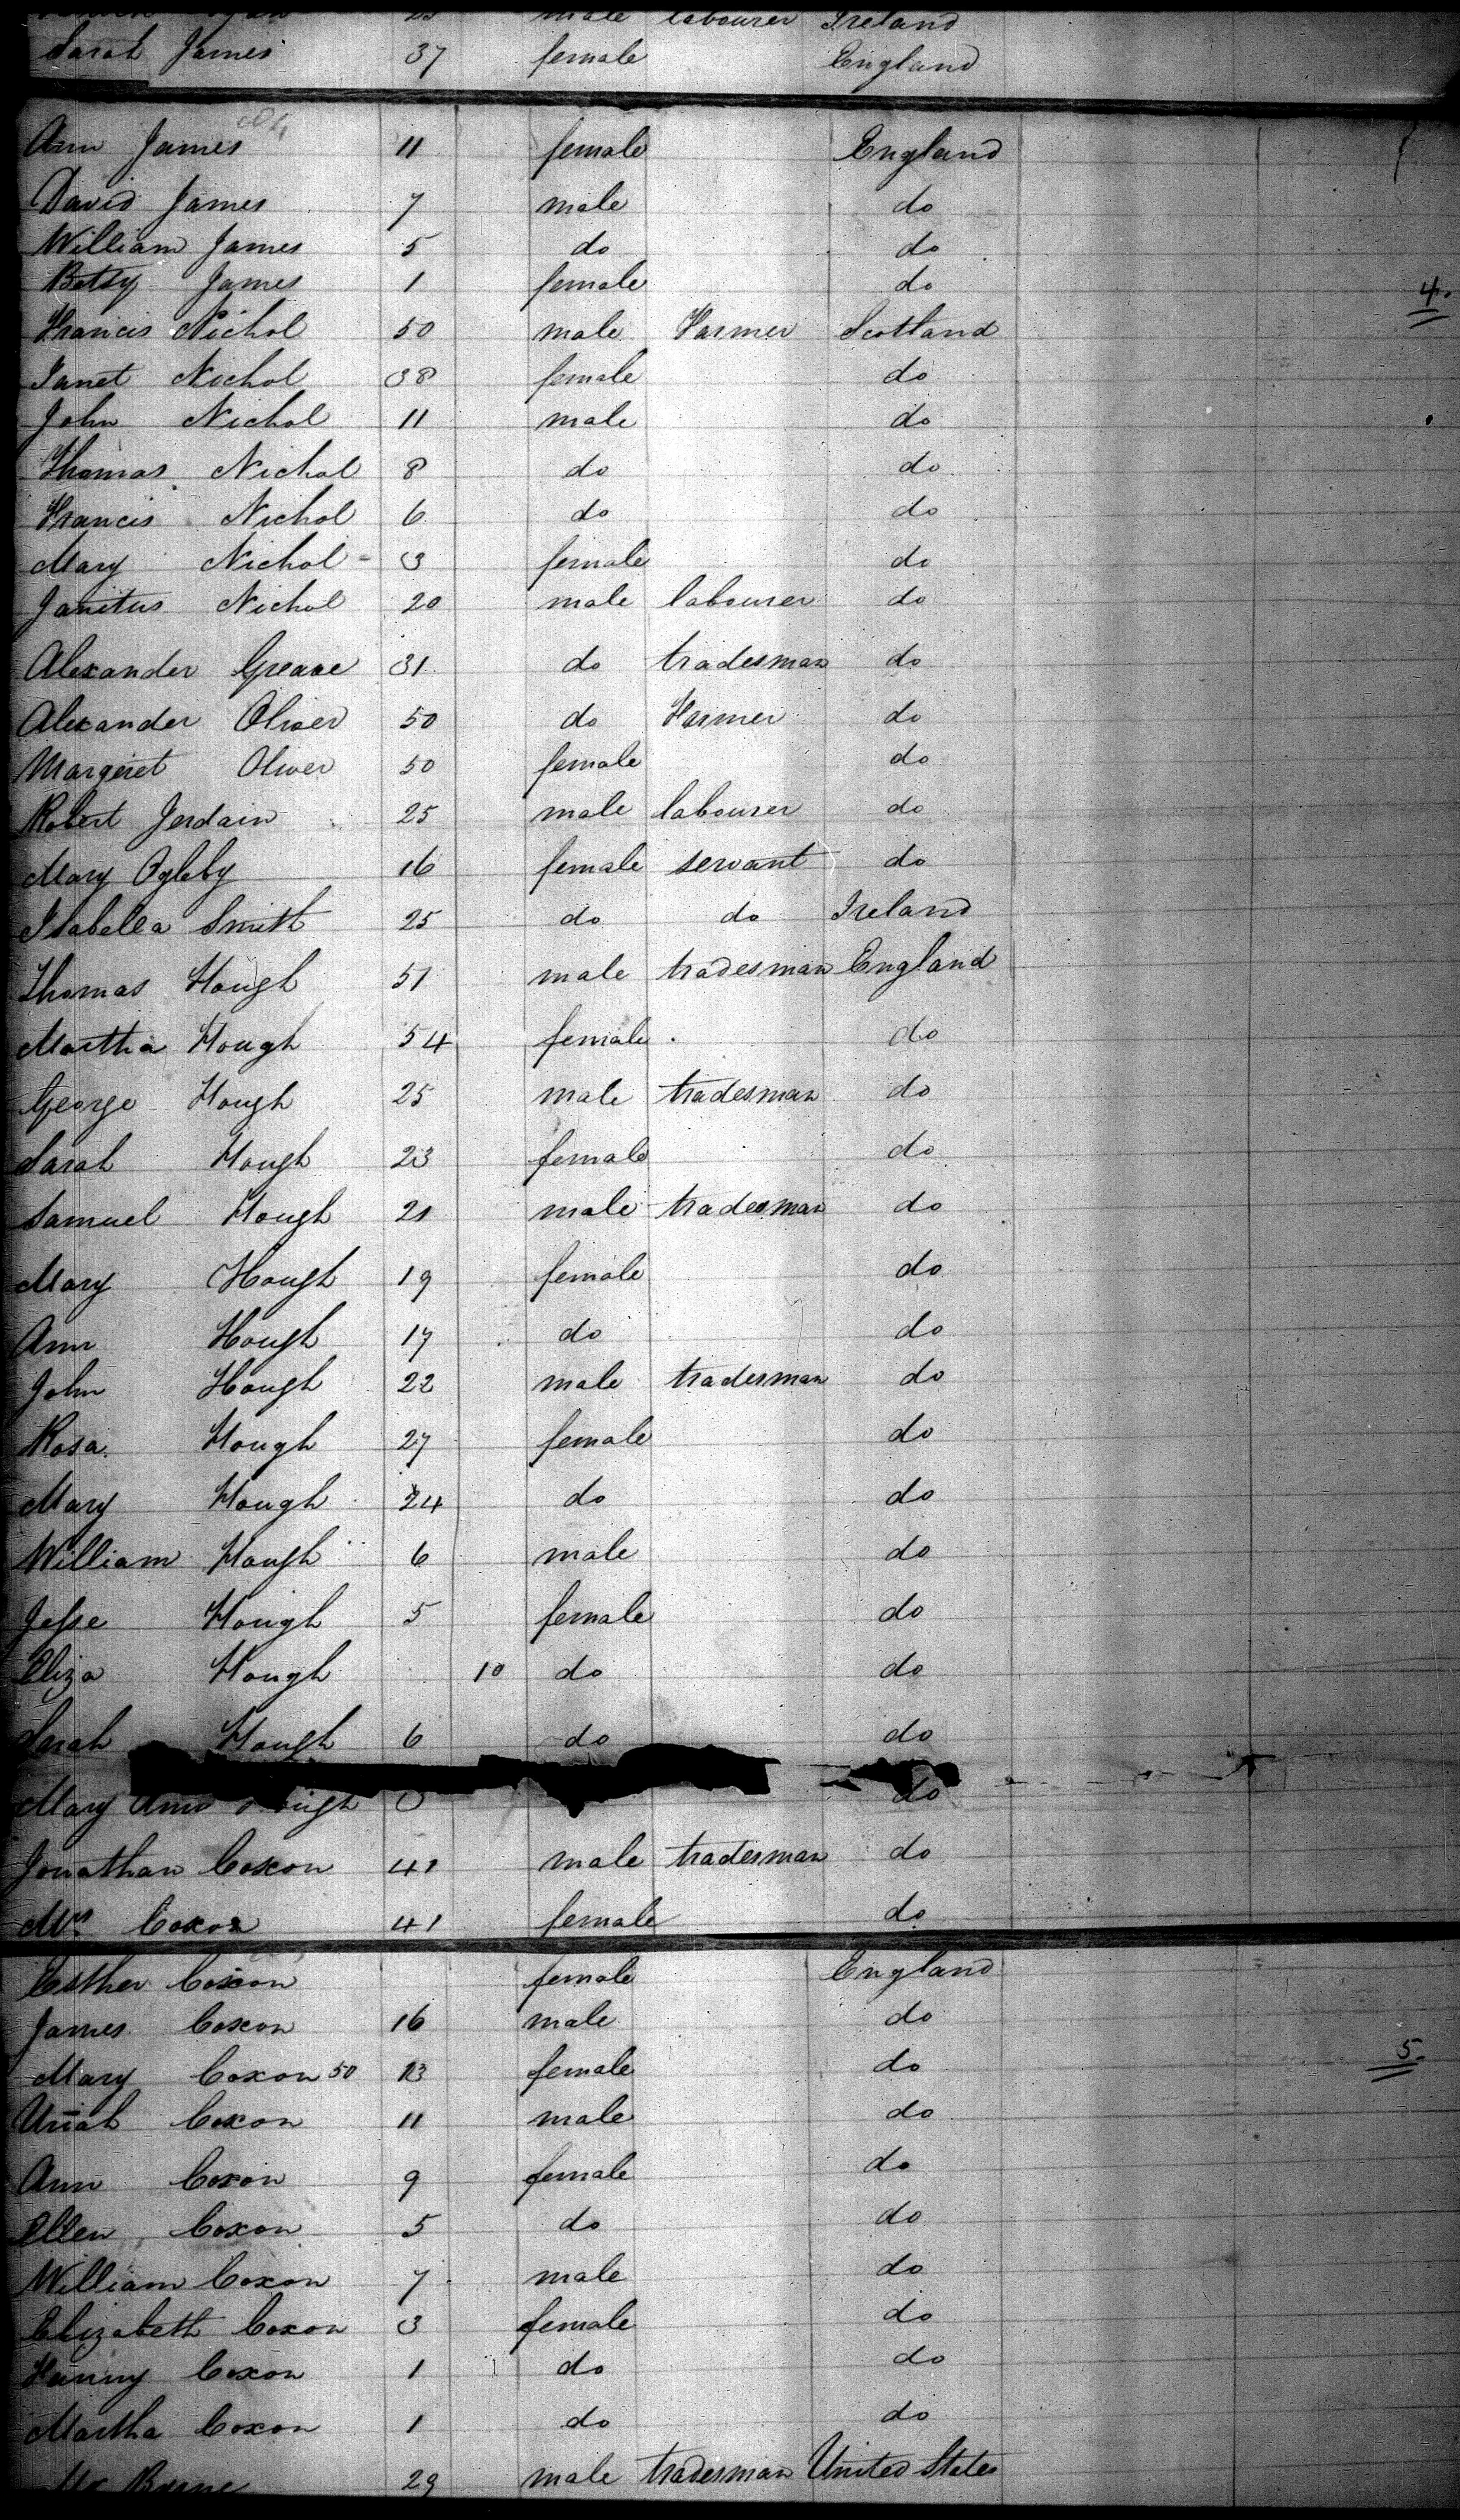 male labourer Ireland
Sarah James 37 female England
Ann James 11 female England
David James 7 male do
William James 5 do do
Betsy James 1 female do
4.
Francis Nichol 50 male Farmer Scotland
Janet Nichol 38 female do
John Nichol 11 male do
Thomas Nichol 8 do do
Francis Nichol 6 do do
Mary Nichol 3 female do
Janitus Nichol 20 male labourer do
Alexander Greave 31 do tradesman do
Alexander Oliver 50 do Farmer do
Margeret Oliver 50 female do
Robert Jerdain 25 male labourer do
Mary Ogleby 16 female servant do
Isabella Smith 25 do do Ireland
Thomas Hough 51 male tradesman England
Martha Hough 54 female do
George Hough 25 male tradesman do
Sarah Hough 23 female do
Samuel Hough 21 male tradesman do
Mary Hough 19 female do
Ann Hough 17 do do
John Hough 22 male tradesman do
Rosa Hough 27 female do
Mary Hough 24 do do
William Hough 6 male do
Jesse Hough 5 female do
Eliza Hough 10 do do
Sarah Hough 6 do do
Mary Ann Hough do
Jonathan Coxon 41 male tradesman do
Mrs Coxon 41 female do
Esther Coxon female England
James Coxon 16 male do
Mary Coxon 50 13 female do
5.
Uriah Coxon 11 male do
Ann Coxon 9 female do
Ellen Coxon 5 do do
William Coxon 7 male do
Elizabeth Coxon 3 female do
Fanny Coxon 1 do do
Martha Coxon 1 do do
Mr 29 male tradesman United States